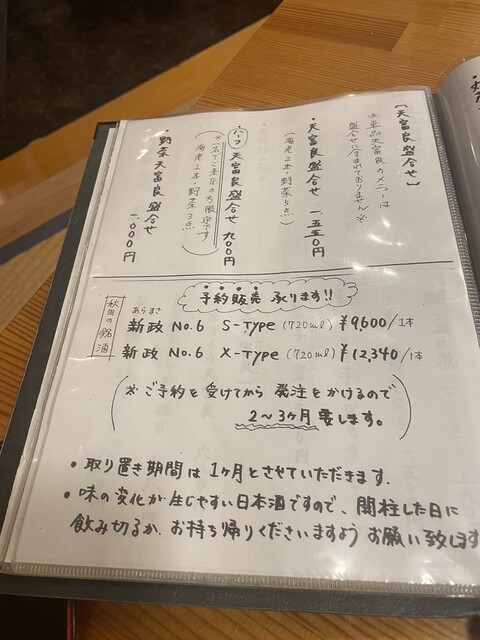 【天富良盛合せ】
※単品天富良のメニューは
盛合せに含まれておりません※
・天富良盛合せ 一、五五〇円
(海老2本・野菜5点)
・ハーフ天富良盛合せ 九〇〇円
(※一名でご来店の方限定です
海老1本・野菜3点)
・野菜天富良盛合せ 一、〇〇〇円
予約販売 承ります!!
秋田の銘酒
あらまさ
新政 No.6 S-Type (720ml) ¥9,600/1本
新政 No.6 X-Type (720ml) ¥12,340/1本
(※ご予約を受けてから 発注をかけるので
2〜3ヶ月要します。)
• 取り置き期間は1ヶ月とさせていただきます.
• 味の変化が生じやすい日本酒ですので、開柱した日に
飲み切るか、お持ち帰りくださいますよう お願い致します